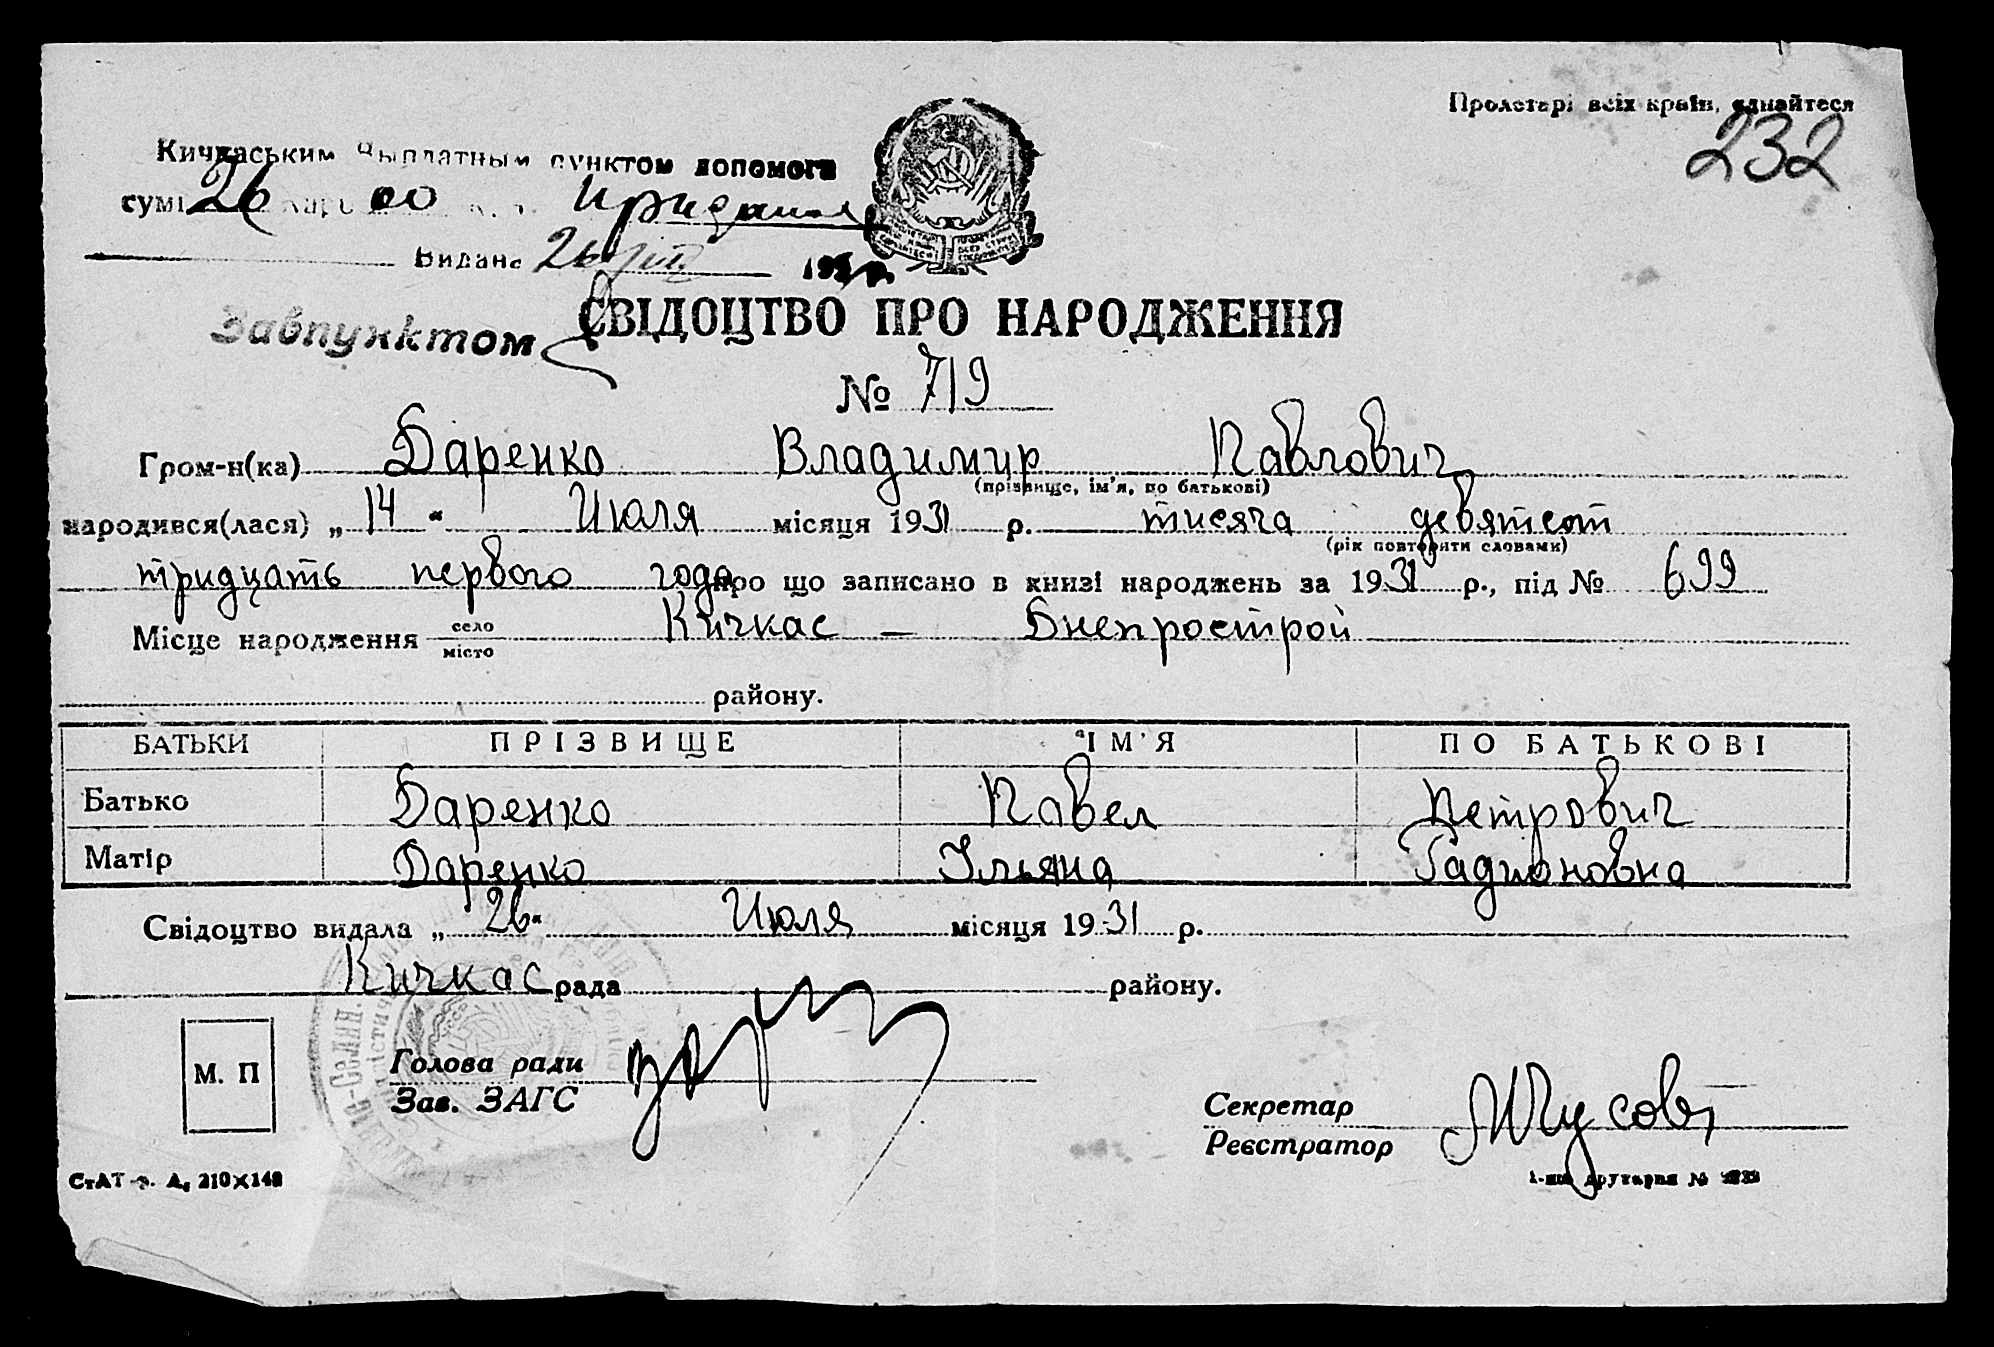 Пролетарі всіх країн, єднайтеся
232
Кичкаським Выплатным пунктом допомога
сумі 26 карб 00 к.
Видано 26/VII 1931 р.
Завпунктом
СВІДОЦТВО ПРО НАРОДЖЕННЯ
№ 719
Гром-н(ка) Даренко Владимир Павлович
(прізвище, ім'я, по батькові)
народився(лася) „ 14 " Июля місяця 1931 р. тисяча девятсот
(рік повторити словами)
тридцать первого года про що записано в книзі народжень за 1931 р., під № 699
Місце народження село Кичкас — Днепрострой
місто
району.
БАТЬКИ ПРІЗВИЩЕ ІМ'Я ПО БАТЬКОВІ
Батько Даренко Павел Петрович
Матір Даренко Ульяна Радионовна
Свідоцтво видала „ 26 " Июля місяця 1931 р.
Кичкас рада району.
М. П
Голова ради
Зав. ЗАГС
Секретар
Реєстратор
СтАТ А₅ 210×148
друкарня №